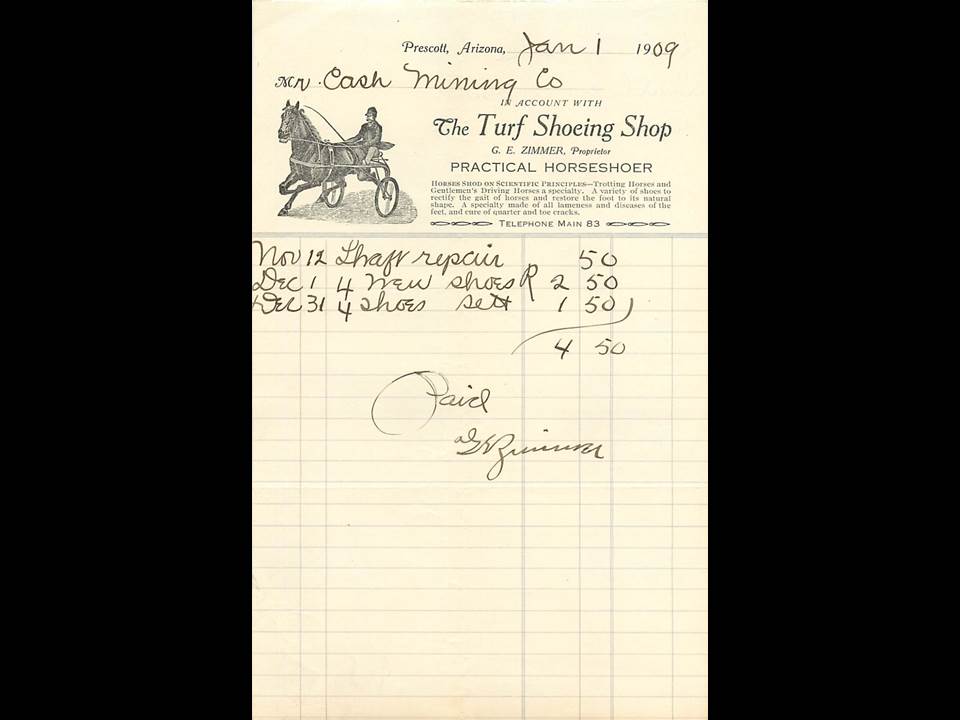 Prescott, Arizona, Jan 1 1909
Mr. Cash Mining Co
IN ACCOUNT WITH
The Turf Shoeing Shop
G. E. ZIMMER, Proprietor
PRACTICAL HORSESHOER
HORSES SHOD ON SCIENTIFIC PRINCIPLES—Trotting Horses and
Gentlemen's Driving Horses a specialty. A variety of shoes to
rectify the gait of horses and restore the foot to its natural
shape. A specialty made of all lameness and diseases of the
feet, and cure of quarter and toe cracks.
TELEPHONE MAIN 83
Nov 12 Shaft repair 50
Dec 1 4 new shoes R 2 50
Dec 31 4 shoes sett 1 50
4 50
Paid
GE Zimmer